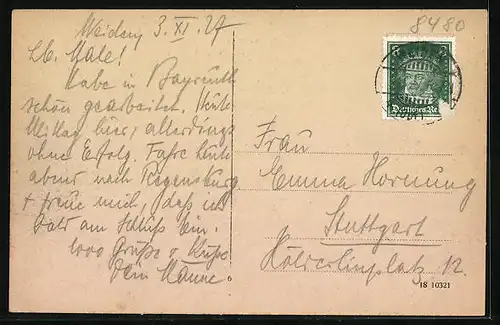 8480
Weiden, 3. XI. 27
Lb. Male!
Habe in Bayreuth
schön gearbeitet. Heute
Mittag hier, allerdings
ohne Erfolg. Fahre heute
abend nach Regensburg
+ freue mich, dass ich
bald am Schluß bin.
1000 Grüße + Küße
Dein Manne.
Deutsches Reich
Frau
Emma Hornung
Stuttgart
Hölderlinplatz 12.
18 10321